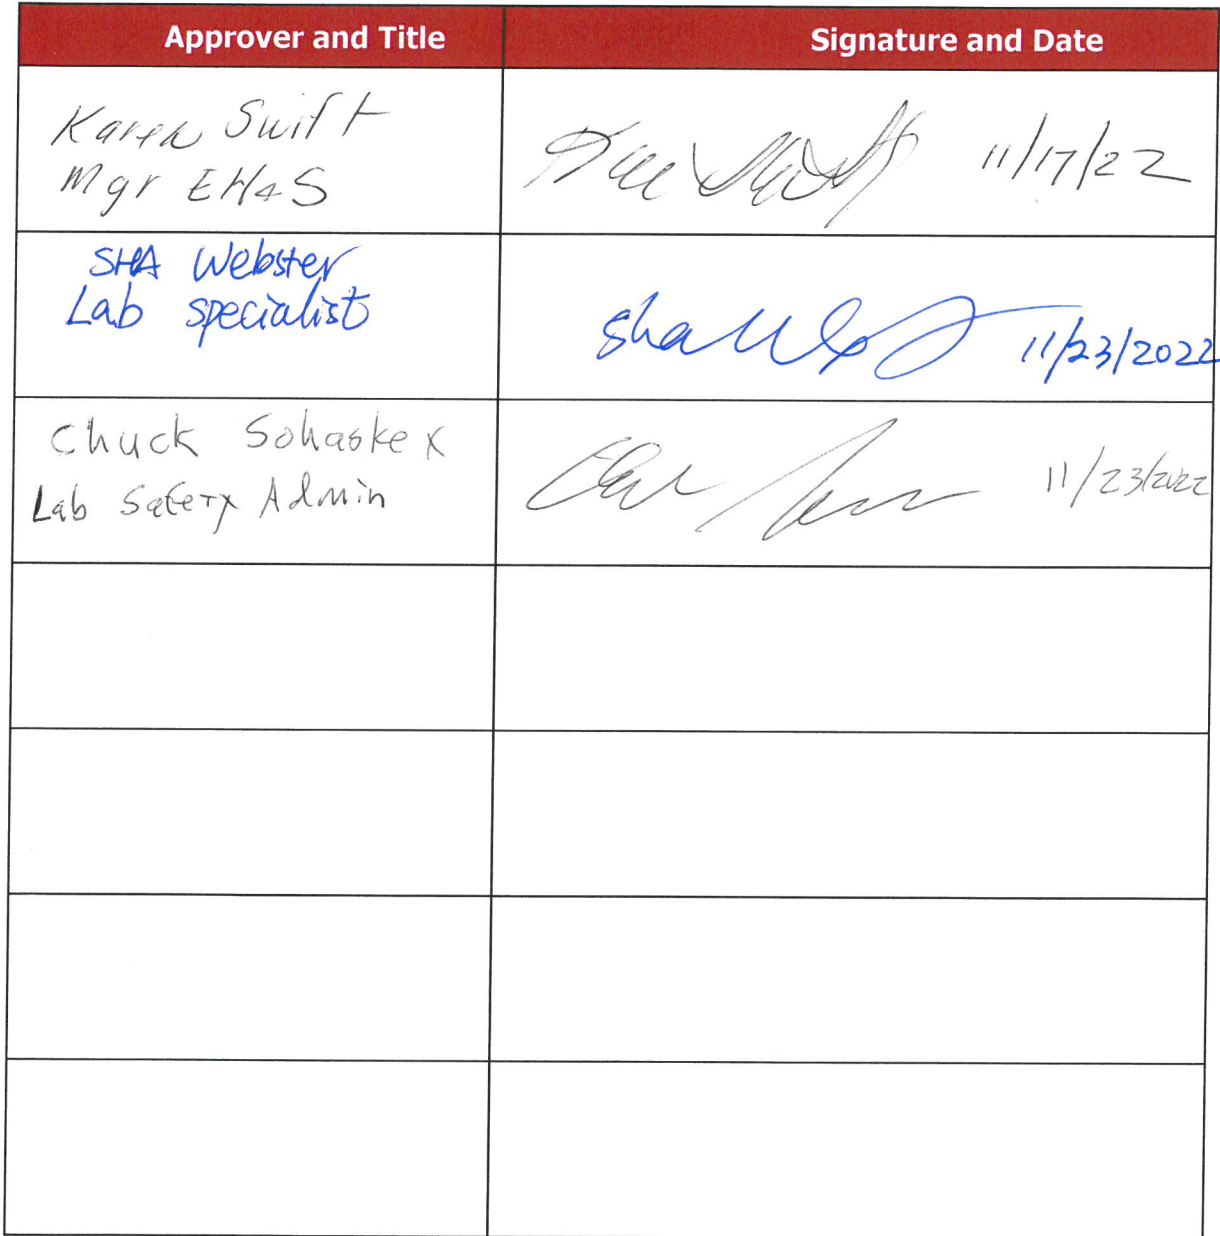 Approver and Title Signature and Date
Karen Swift
Mgr EH&S
11/17/22
SHA Webster
Lab specialist
sha 11/23/2022
Chuck
Lab Safety Admin
11/23/2022